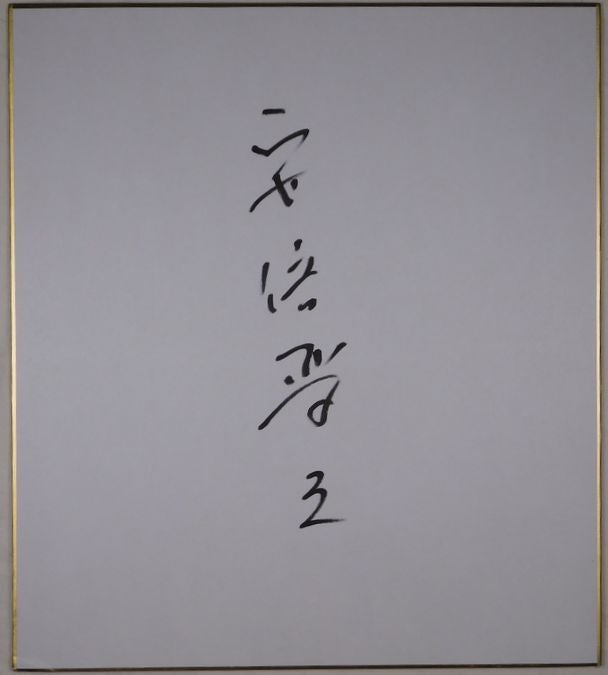 安倍晋三